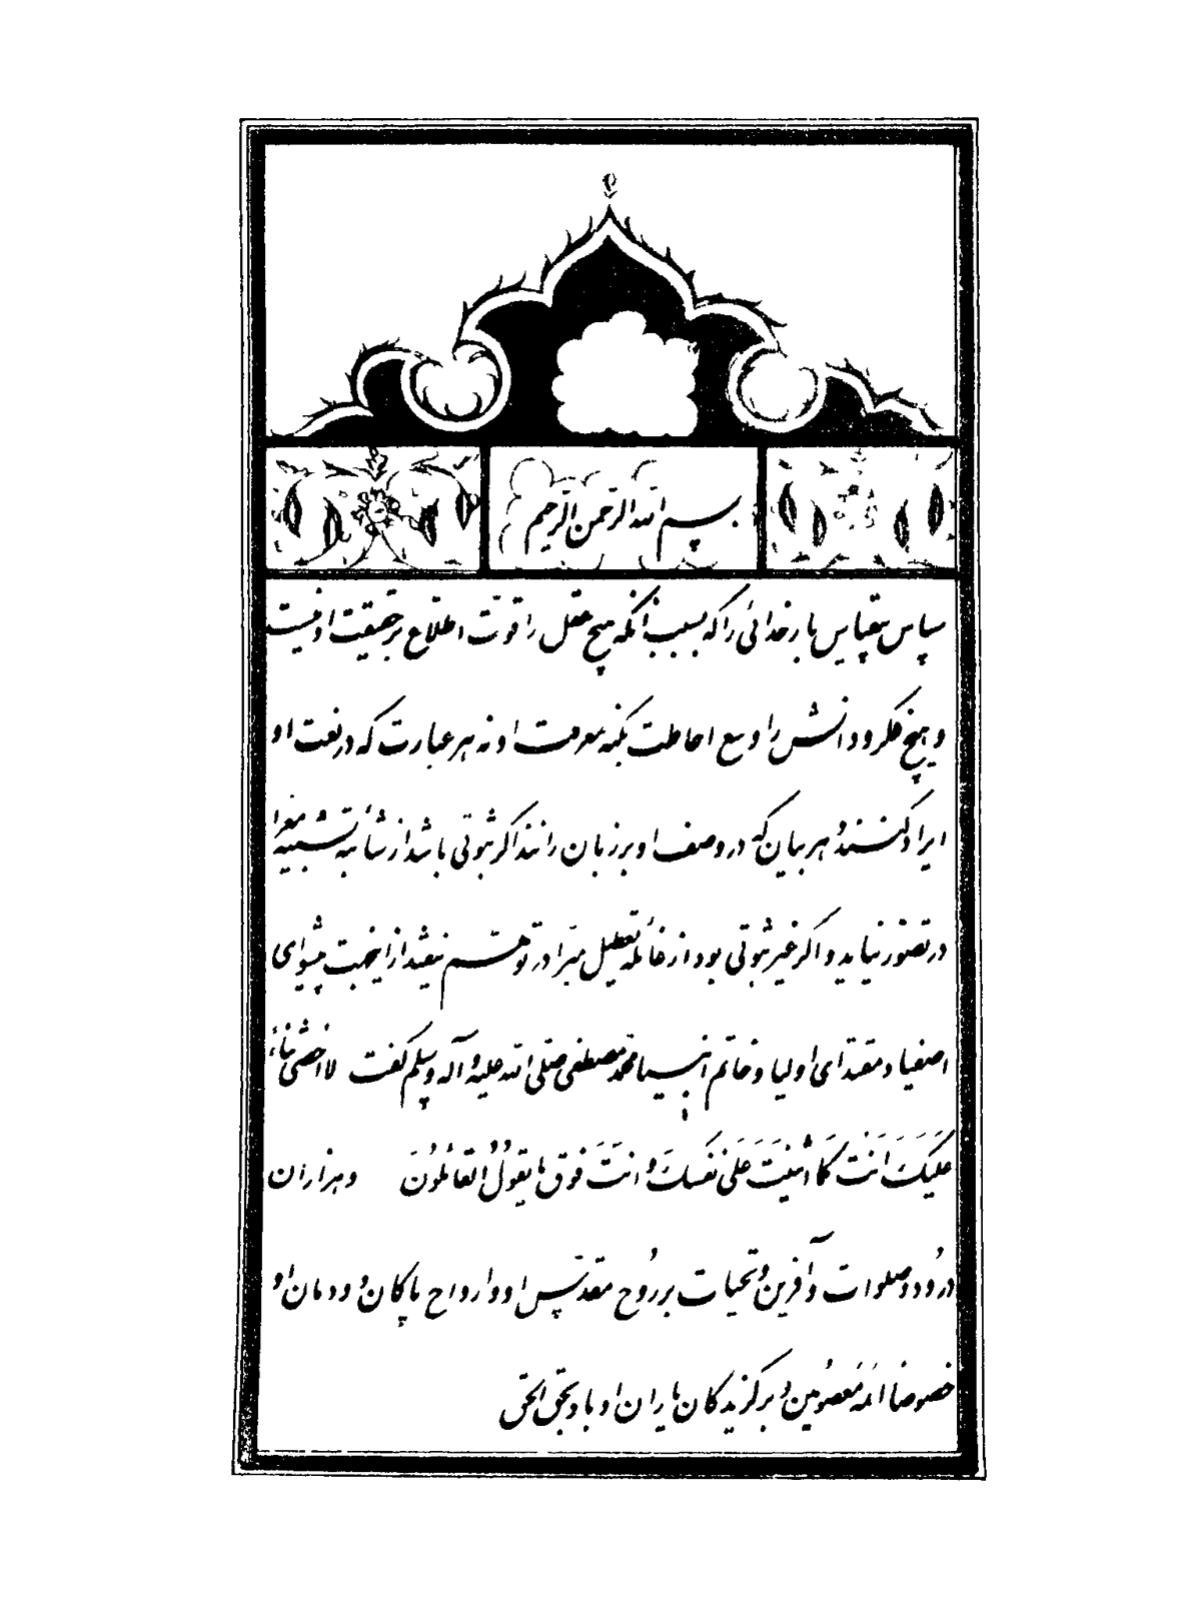 بسم الله الرحمن الرحیم
سپاس بیقیاس بار خدائی را که بسبب آنکه هیچ عقل را قوت اطلاع بر حقیقت او نیست
و هیچ فکر و دانش را وسع احاطت بکنه معرفت او نه هر عبارت که در نعت او
ایراد کنند و هر بیان که در وصف او بر زبان رانند اگر ثبوتی باشد از شائبه تشبیه معرا
در تصور نیاید و اگر غیر ثبوتی بود از غائله تعطیل مبرا در توهم نیفتد از اینجهت پیشوای
اصفیا و مقتدای اولیا و خاتم انبیا محمد مصطفی صلی الله علیه و آله و سلم گفت لا احصی ثناء
عَلَیکَ اَنتَ کَما اثنَیتَ عَلی نَفسِکَ وَ انتَ فَوقَ ما یَقُولُ القائلُونَ و هزاران
درُود و صلوات و آفرین و تحیات بر رُوح مقدّس او و ارواح پاکان دودمان او
خصوصا ائمه مَعصُومین و برگزیدگان یاران او باد بحق الحق